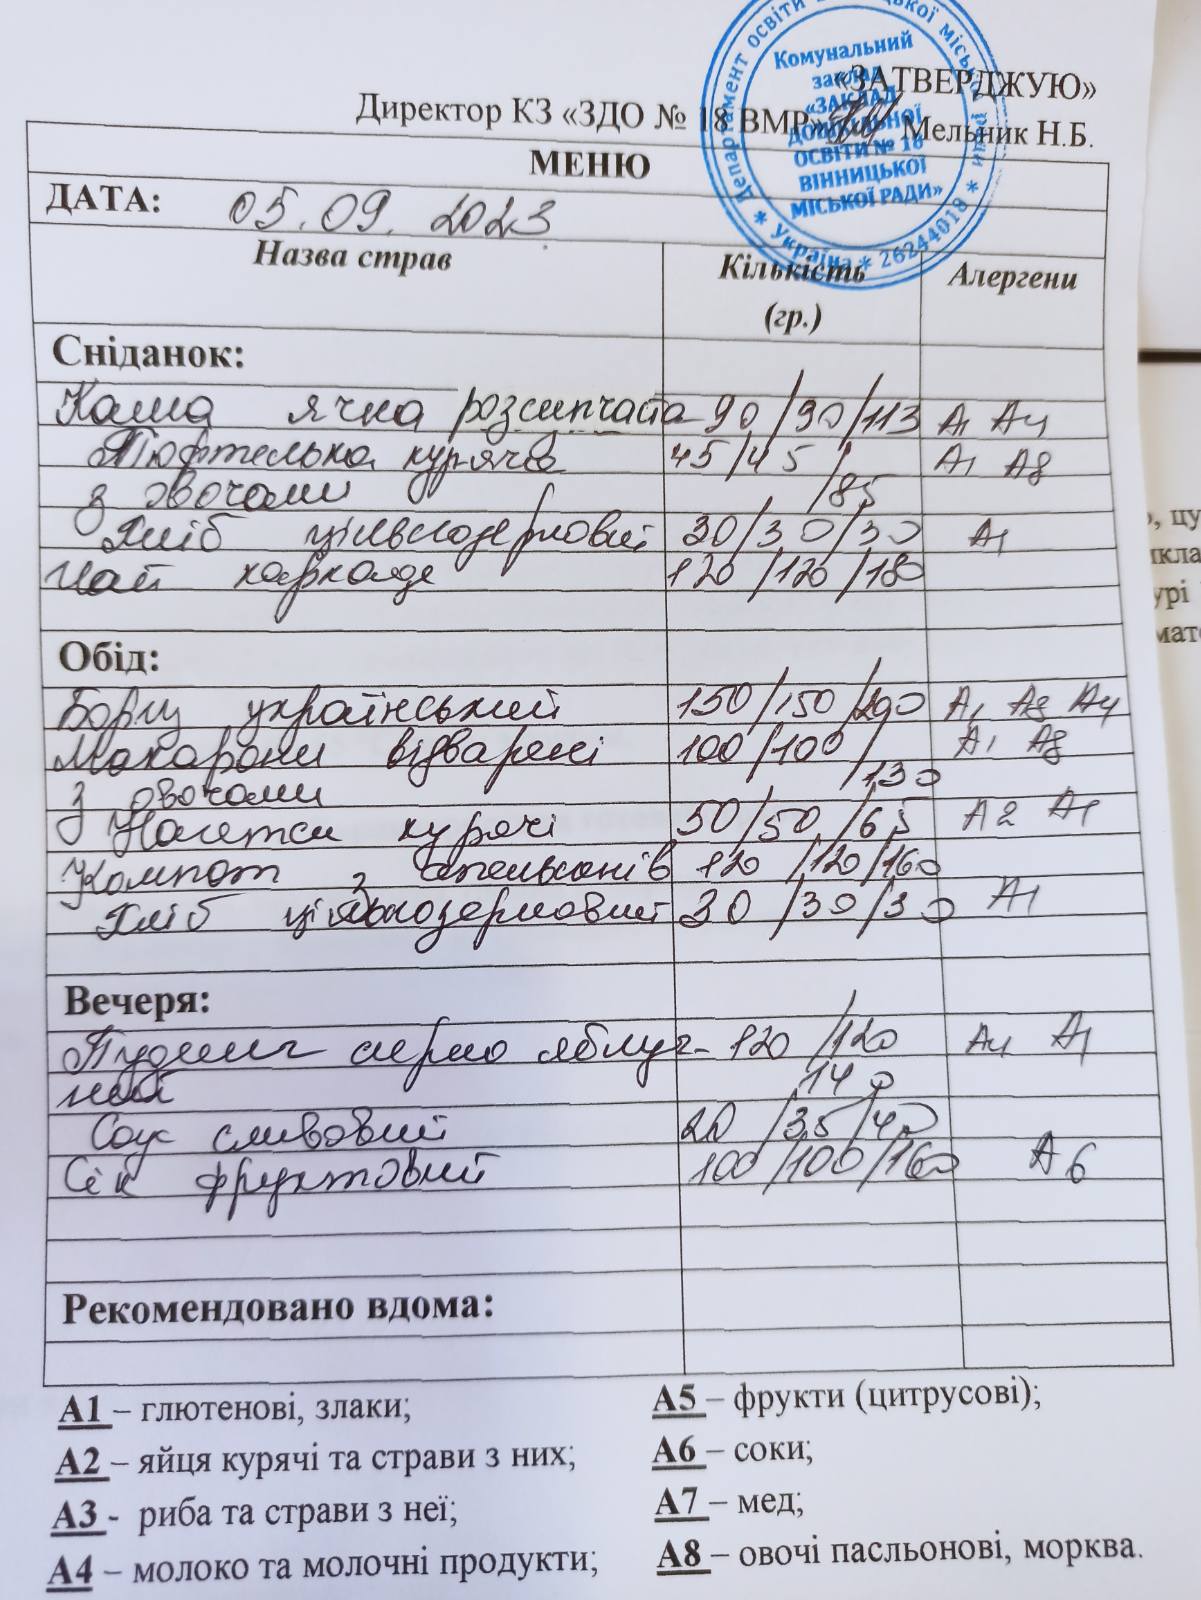 «ЗАТВЕРДЖУЮ»
Директор КЗ «ЗДО № 18 ВМР» Мельник Н.Б.
Департамент освіти Вінницької міської ради * Україна * 26244018 *
Комунальний
заклад
«ЗАКЛАД
ДОШКІЛЬНОЇ
ОСВІТИ № 18
ВІННИЦЬКОЇ
МІСЬКОЇ РАДИ»
МЕНЮ
ДАТА: 05.09.2023
Назва страв Кількість Алергени
(гр.)
Сніданок:
Каша ячна розсипчаста 90/90/113 А1 А4
Тюфтелька куряча 45/45/ А1 А8
з овочами /85
Хліб цільнозерновий 30/30/30 А1
Чай каркаде 120/120/180
Обід:
Борщ український 150/150/290 А1 А8 А4
Макарони відварені 100/100/ А1 А8
з овочами /130
Нагетси курячі 50/50/65 А2 А1
Компот з апельсинів 120/120/160
Хліб цільнозерновий 30/30/30 А1
Вечеря:
Пудинг сирно яблуч- 120/120 А4 А1
ний /140
Соус сливовий 20/35/40
Сік фруктовий 100/100/160 А6
Рекомендовано вдома:
А1 – глютенові, злаки; А5 – фрукти (цитрусові);
А2 – яйця курячі та страви з них; А6 – соки;
А3 - риба та страви з неї; А7 – мед;
А4 – молоко та молочні продукти; А8 – овочі пасльонові, морква.
, цу
урі